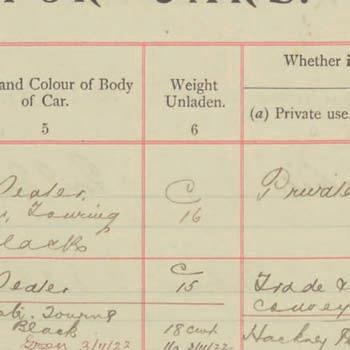 FOR CARS.
and Colour of Body of Car.
Weight Unladen.
Whether i
(a) Private use
5
6
Seater,
C
Private
Touring
16
Black
Seater
C
15
Trade &
convey
Touring
Black
18 cwt
Hackney
Green 3/11/22
3/11/22